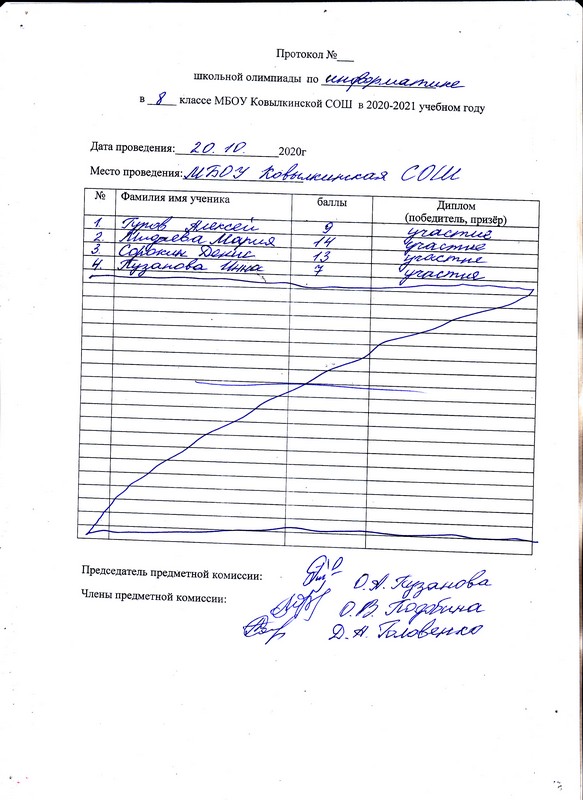 Протокол №___
школьной олимпиады по информатике
в 8 классе МБОУ Ковылкинской СОШ в 2020-2021 учебном году
Дата проведения: 20.10. 2020г
Место проведения: МБОУ Ковылкинская СОШ
№ Фамилия имя ученика баллы Диплом (победитель, призёр)
1. Гуров Алексей 9 участие
2. Мария 14 участие
3. Сорокин Денис 13 участие
4. Пузанова Инна 7 участие
Председатель предметной комиссии: О.А. Пузанова
Члены предметной комиссии: О.В. Подобина
Д.А. Головенко